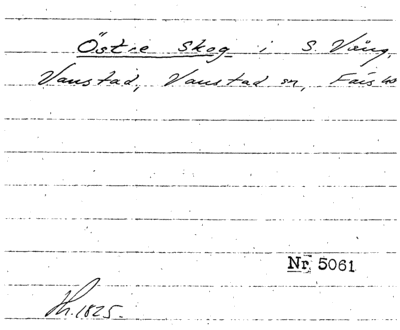 Östre Skog i S. Vång,
Vanstad, Vanstad sn, Färs hd
Nr 5061
Hk. 1825.